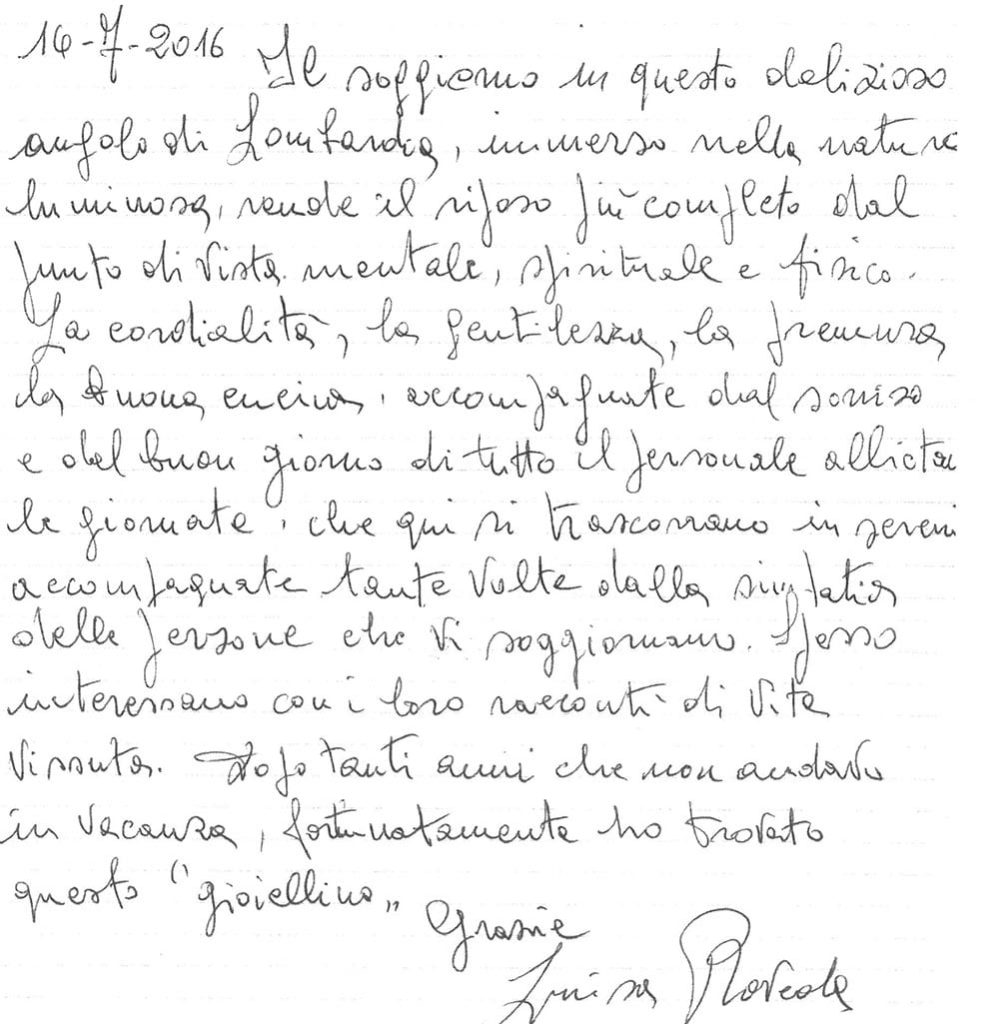 14-7-2016 Il soggiorno in questo delizioso
angolo di Lombardia, immerso nella natura
luminosa, rende il riposo più completo dal
punto di vista mentale, spirituale e fisico.
La cordialità, la gentilezza, la premura,
la buona cucina, accompagnate dal sorriso
e dal buon giorno di tutto il personale allietan
le giornate, che qui si trascorrano in sereni
accompagnate tante volte dalla simpatia
delle persone che vi soggiornano. Spesso
interessano con i loro racconti di vita
vissuta. Dopo tanti anni che non andavo
in vacanza, fortunatamente ho trovato
questo "gioiellino„ Grazie
Luisa